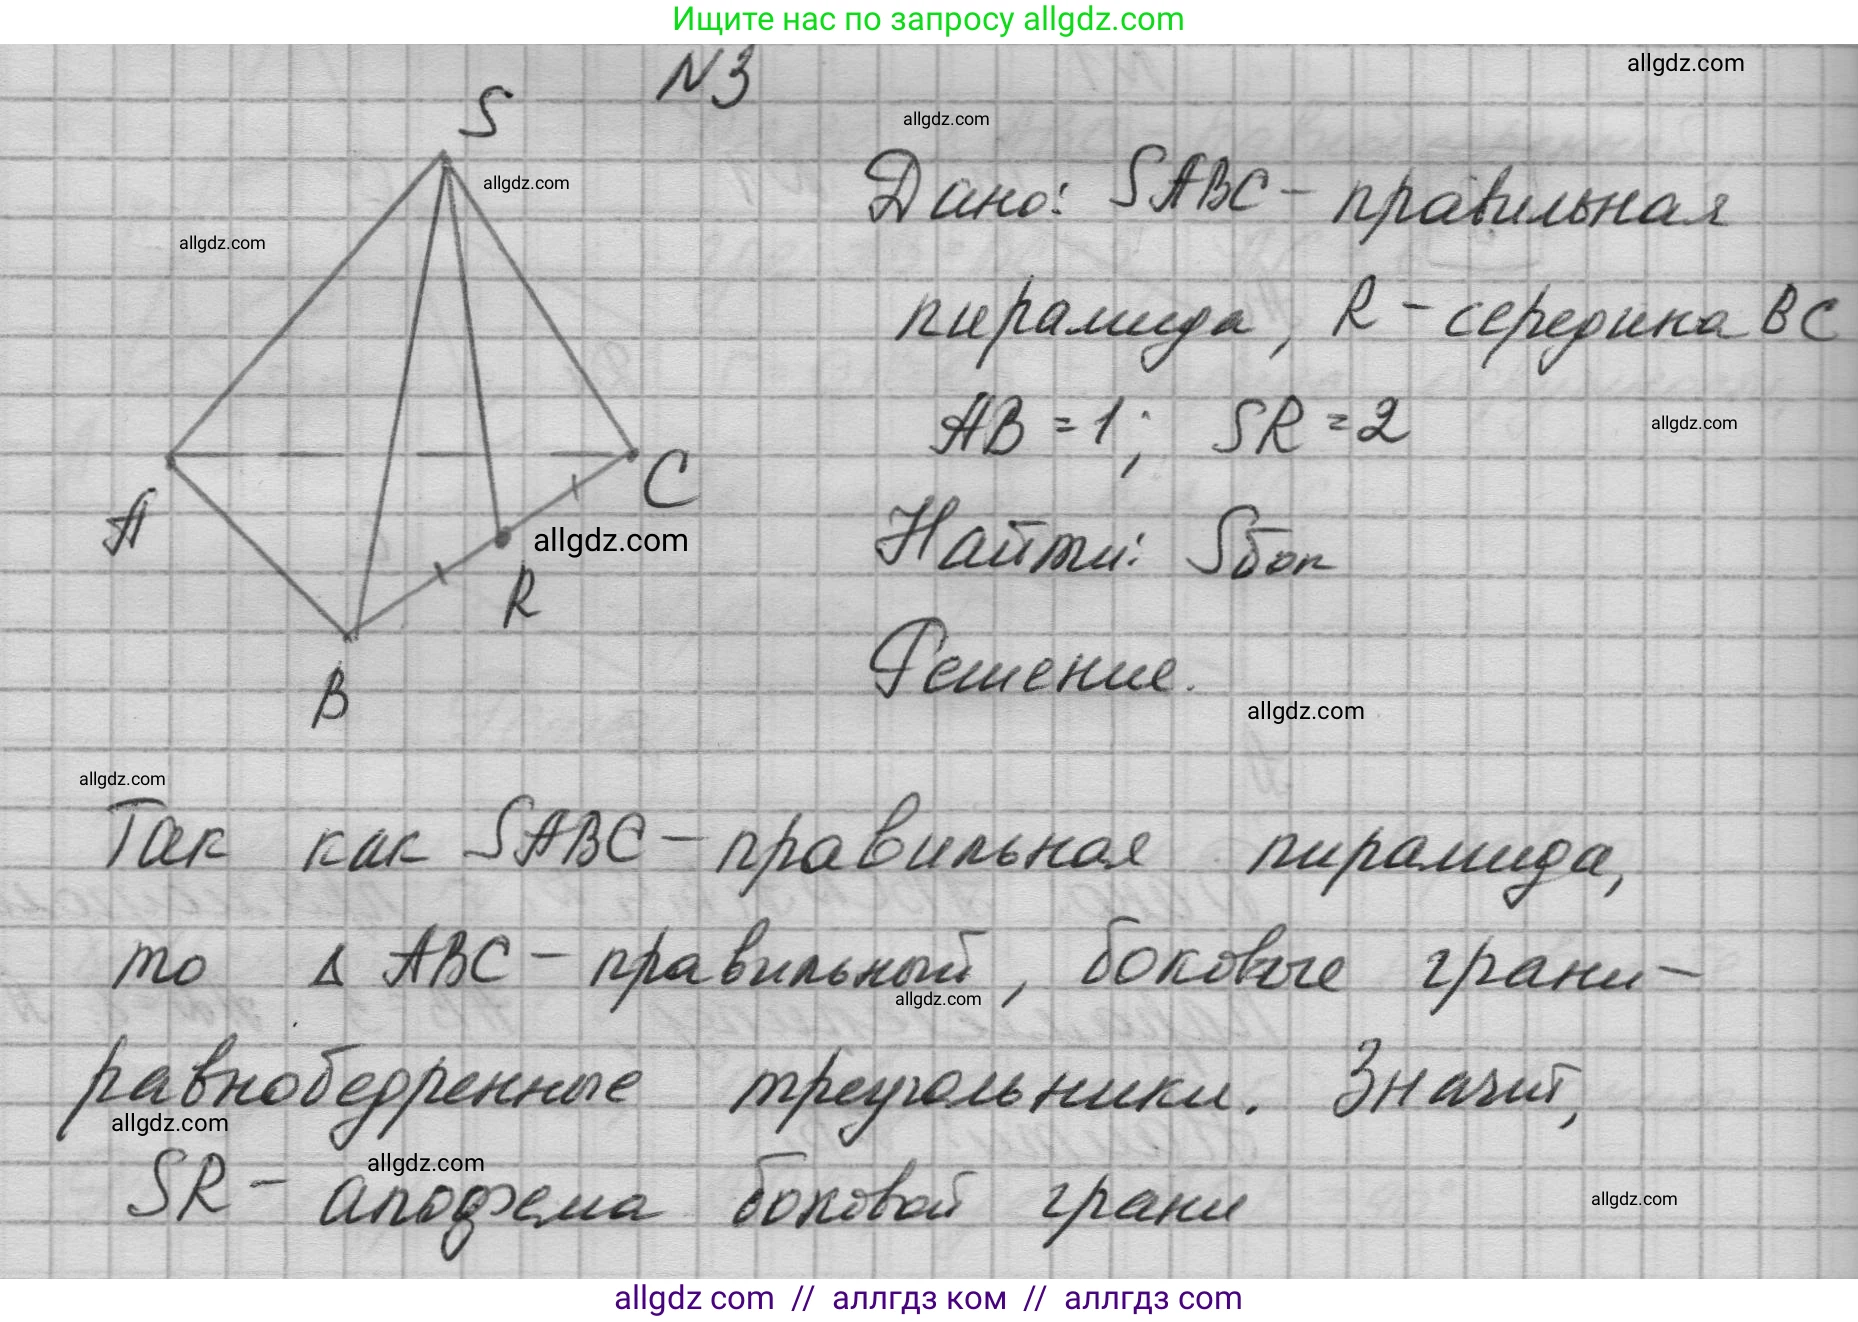 Ищите нас по запросу allgdz.com
N3
allgdz.com
allgdz.com
S
allgdz.com
Дано: SABC - правильная
allgdz.com
пирамида, R - середина BC
AB = 1; SR = 2
allgdz.com
A
C
allgdz.com
R
B
Найти: Sбок
Решение.
allgdz.com
allgdz.com
Так как SABC - правильная пирамида,
то Δ ABC - правильный, боковые грани -
allgdz.com
равнобедренные треугольники. Значит,
allgdz.com
allgdz.com
SR - апофема боковой грани
allgdz.com
allgdz com // аллгдз ком // аллгдз com